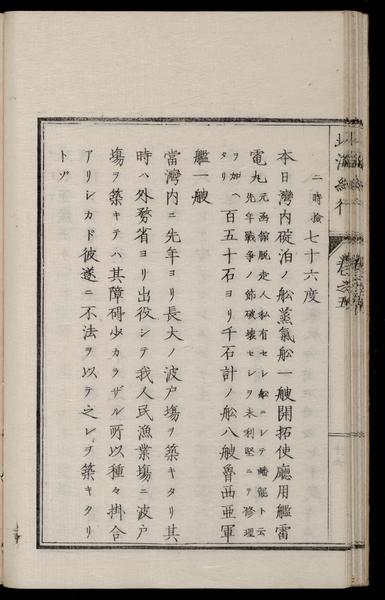 二時撿七十六度
本日灣内碇泊ノ舩蒸氣舩一艘開拓使廳用艦雷
電丸元函館脱走人私有セシ舩ニシテ 艦ト云
先年戰爭ノ節破壊セシヲ米利堅ニテ修理
ヲ加ヘ
タリ
百五十石ヨリ千石計ノ舩八艘魯西亜軍
艦一艘
當灣内ニ先年ヨリ長大ノ波戸塲ヲ築キタリ其
時ハ外務省ヨリ出役シテ我人民漁業塲ニ波戸
塲ヲ築キテハ其障碍少カラザル所以種々掛合
アリシカド彼遂ニ不法ヲ以テ之レヲ築キタリ
トゾ
北海紀行
卷之五